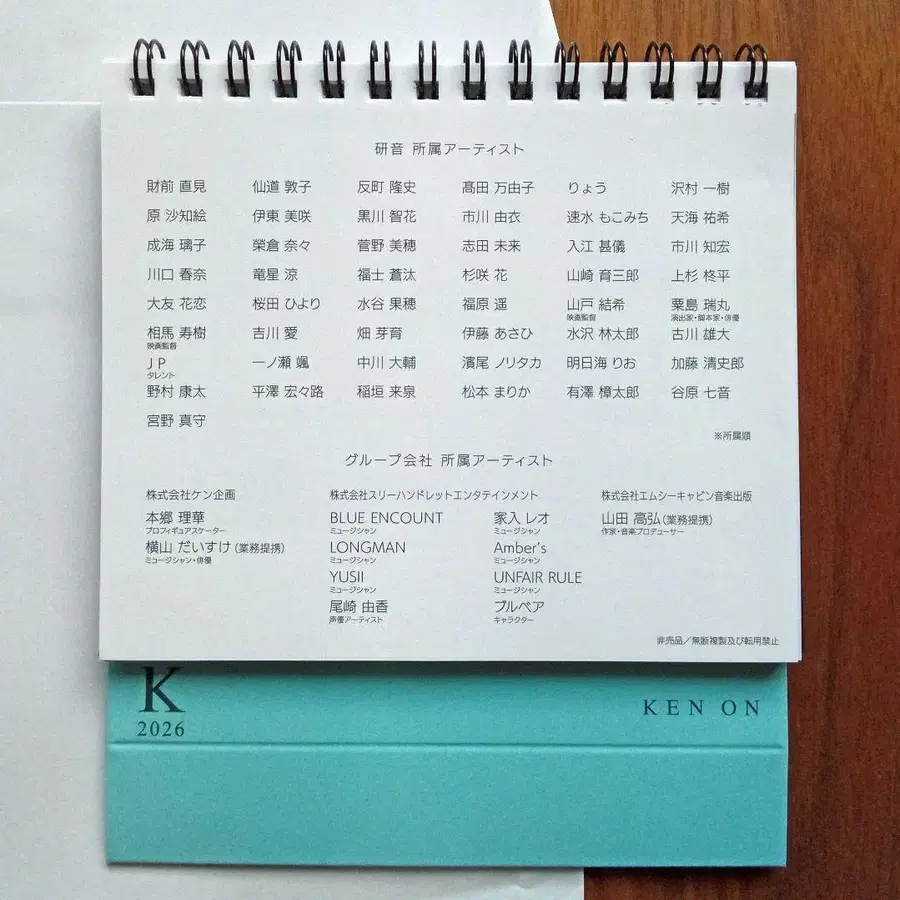 研音 所属アーティスト
財前 直見 仙道 敦子 反町 隆史 髙田 万由子 りょう 沢村 一樹
原 沙知絵 伊東 美咲 黒川 智花 市川 由衣 速水 もこみち 天海 祐希
成海 璃子 榮倉 奈々 菅野 美穂 志田 未来 入江 甚儀 市川 知宏
川口 春奈 竜星 涼 福士 蒼汰 杉咲 花 山崎 育三郎 上杉 柊平
大友 花恋 桜田 ひより 水谷 果穂 福原 遥 山戸 結希 粟島 瑞丸
映画監督 演出家・脚本家・俳優
相馬 寿樹 吉川 愛 畑 芽育 伊藤 あさひ 水沢 林太郎 古川 雄大
映画監督
JP 一ノ瀬 颯 中川 大輔 濱尾 ノリタカ 明日海 りお 加藤 清史郎
タレント
野村 康太 平澤 宏々路 稲垣 来泉 松本 まりか 有澤 樟太郎 谷原 七音
宮野 真守
※所属順
グループ会社 所属アーティスト
株式会社ケン企画 株式会社スリーハンドレットエンタテインメント 株式会社エムシーキャビン音楽出版
本郷 理華 BLUE ENCOUNT 家入 レオ 山田 高弘(業務提携)
プロフィギュアスケーター ミュージシャン ミュージシャン 作家・音楽プロデューサー
横山 だいすけ(業務提携) LONGMAN Amber's
ミュージシャン・俳優 ミュージシャン ミュージシャン
YUSII UNFAIR RULE
ミュージシャン ミュージシャン
尾崎 由香 ブルベア
声優アーティスト キャラクター
非売品/無断複製及び転用禁止
K
2026
KEN ON